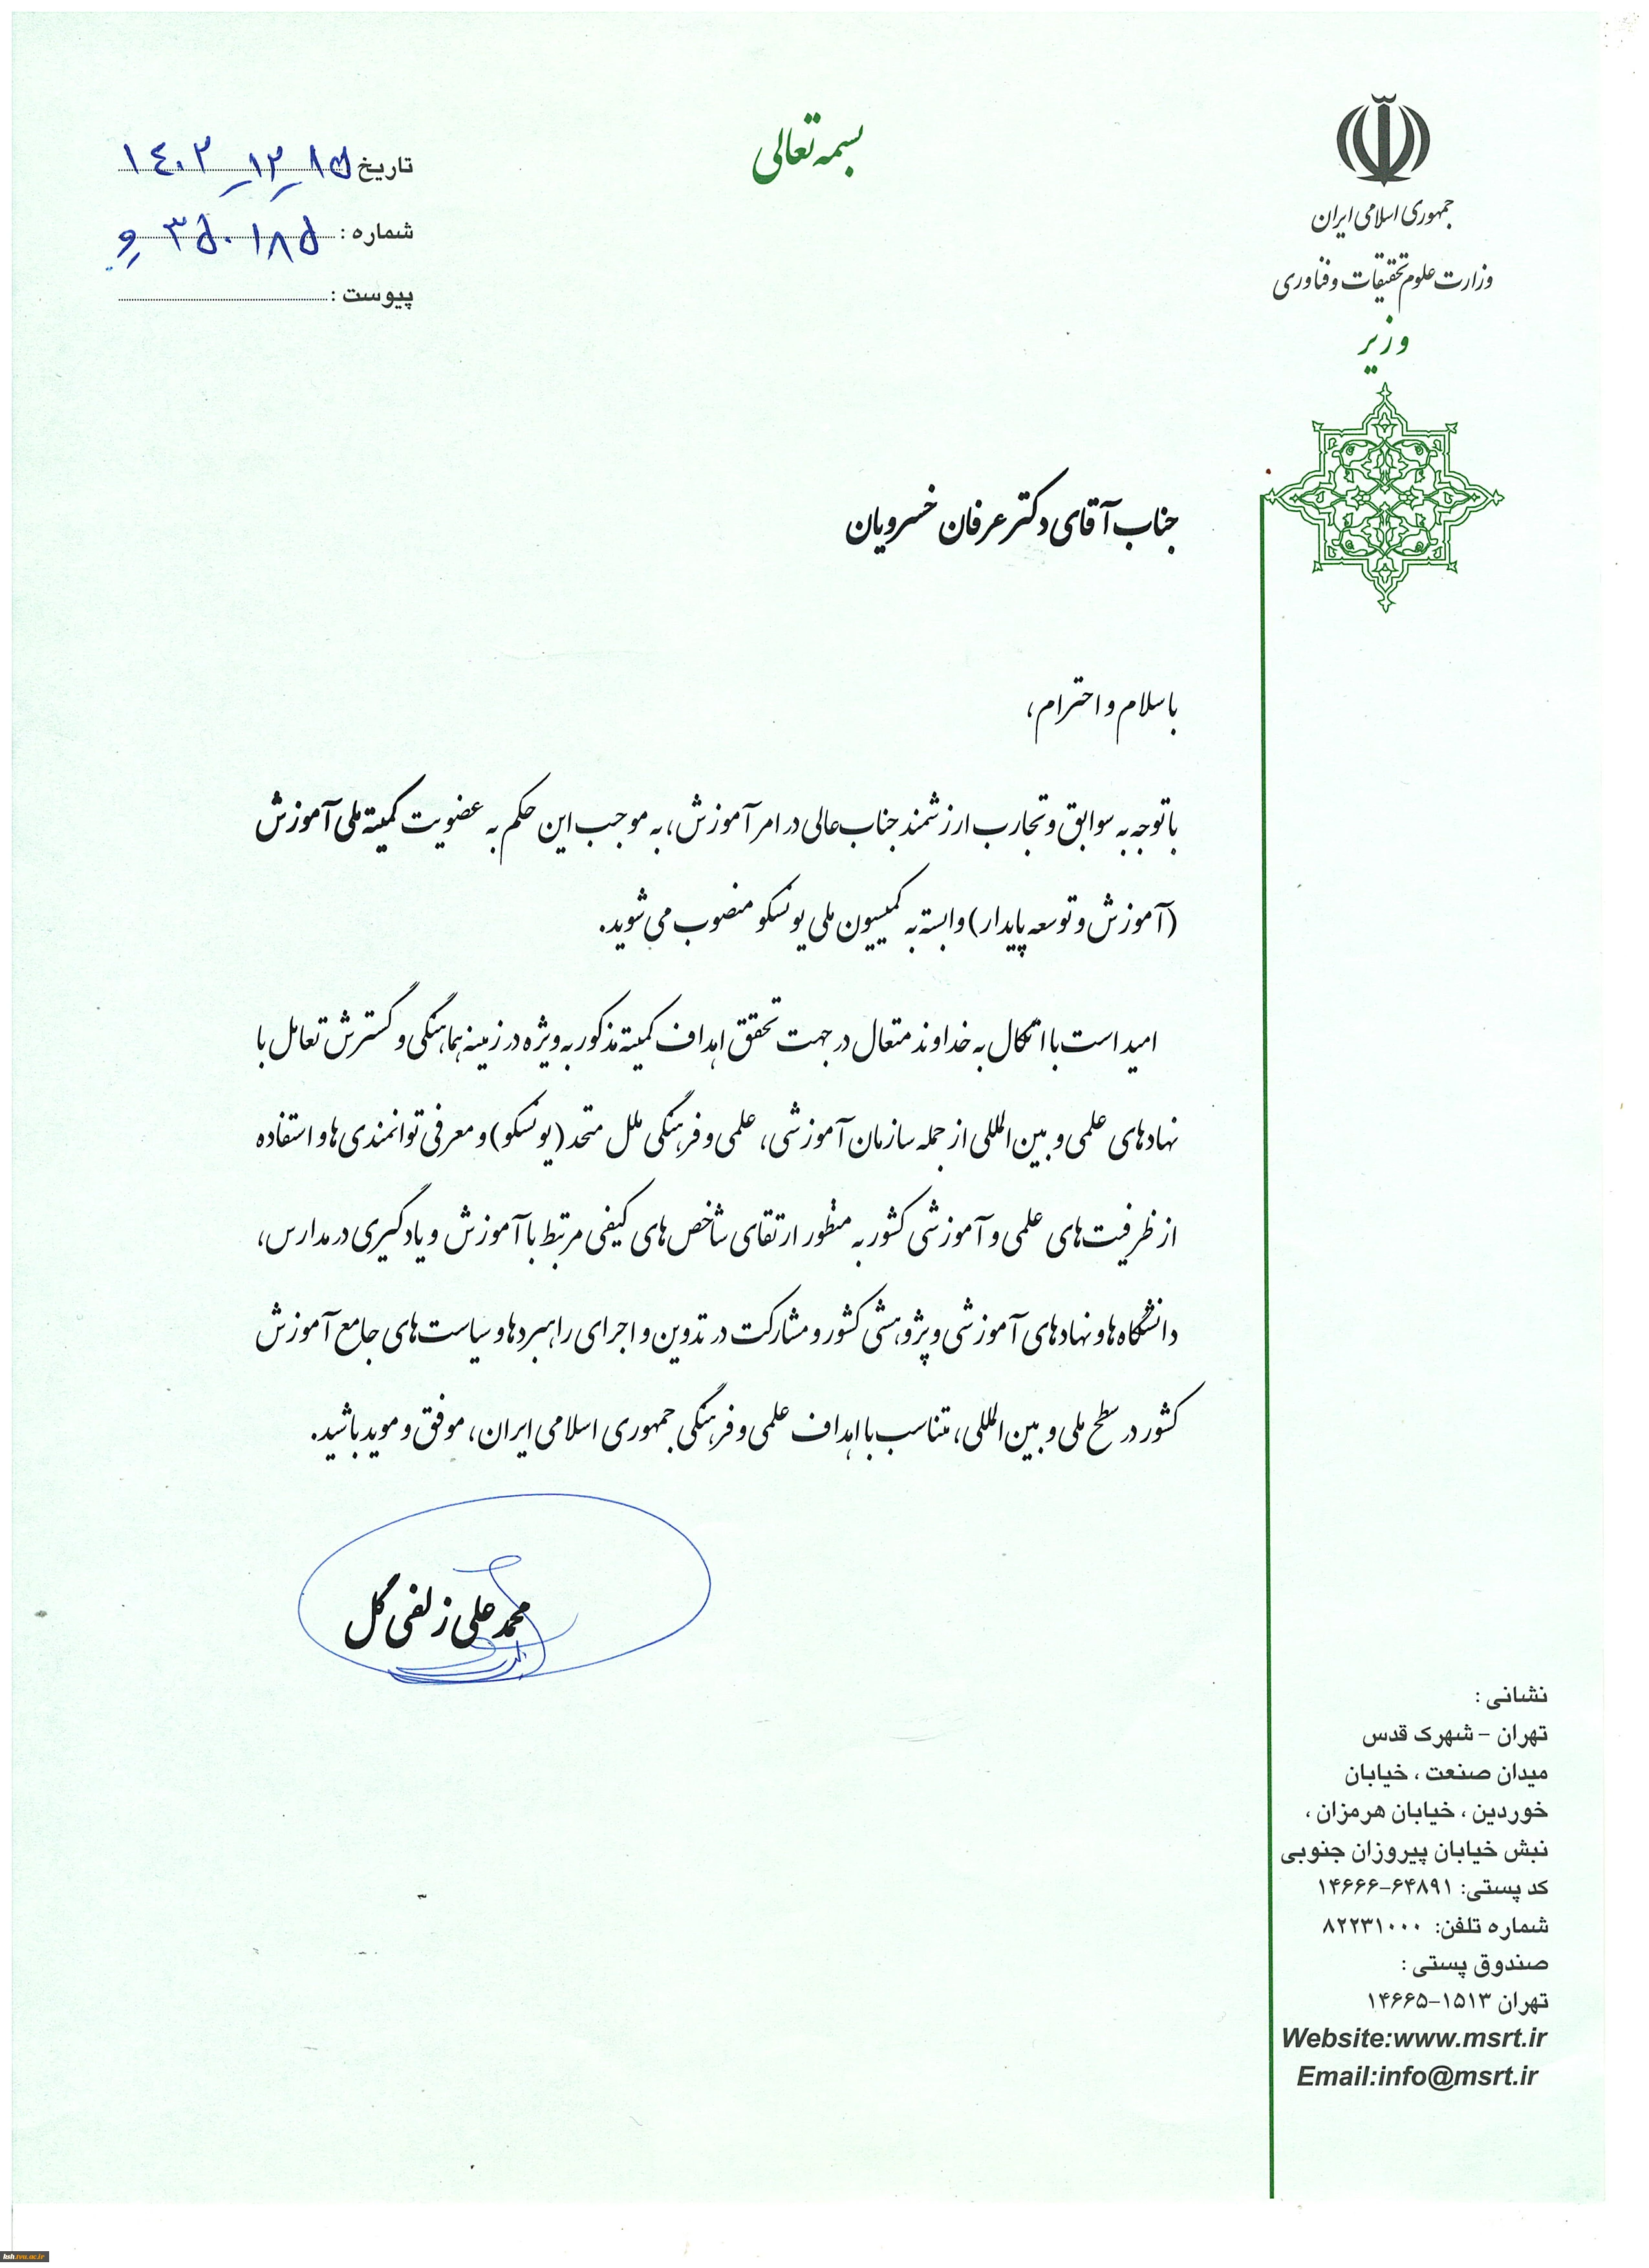 جمهوری اسلامی ایران
وزارت علوم تحقیقات و فناوری
وزیر
بسمه تعالی
تاریخ ۱۴۰۲-۱۲-۱۵
شماره : ۳۵۰۱۸۵ و
پیوست :
جناب آقای دکتر عرفان خسرویان
با سلام و احترام،
با توجه به سوابق و تجارب ارزشمند جناب‌عالی در امر آموزش، به موجب این حکم به عضویت کمیته ملی آموزش
(آموزش و توسعه پایدار) وابسته به کمیسیون ملی یونسکو منصوب می‌شوید.
امید است با اتکال به خداوند متعال در جهت تحقق اهداف کمیته مذکور به ویژه در زمینه هماهنگی و گسترش تعامل با
نهادهای علمی و بین‌المللی از جمله سازمان آموزشی، علمی و فرهنگی ملل متحد (یونسکو) و معرفی توانمندی‌ها و استفاده
از ظرفیت‌های علمی و آموزشی کشور به منظور ارتقای شاخص‌های کیفی مرتبط با آموزش و یادگیری در مدارس،
دانشگاه‌ها و نهادهای آموزشی و پژوهشی کشور و مشارکت در تدوین و اجرای راهبردها و سیاست‌های جامع آموزش
کشور در سطح ملی و بین‌المللی، متناسب با اهداف علمی و فرهنگی جمهوری اسلامی ایران، موفق و موید باشید.
محمدعلی زلفی گل
نشانی :
تهران - شهرک قدس
میدان صنعت ، خیابان
خوردین ، خیابان هرمزان ،
نبش خیابان پیروزان جنوبی
کد پستی: ۶۴۸۹۱-۱۴۶۶۶
شماره تلفن: ۸۲۲۳۱۰۰۰
صندوق پستی :
تهران ۱۵۱۳-۱۴۶۶۵
Website:www.msrt.ir
Email:info@msrt.ir
bsh.tvu.ac.ir